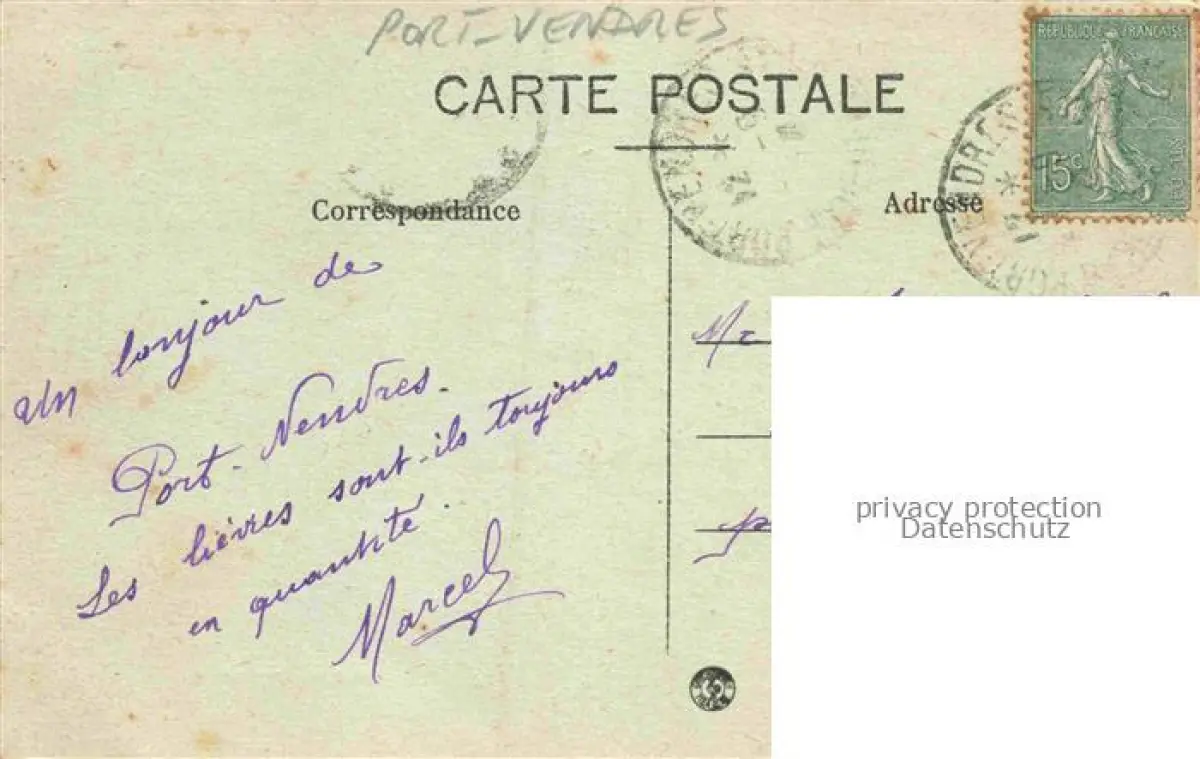 PORT-VENDRES
CARTE POSTALE
REPUBLIQUE FRANÇAISE
15c
Correspondance
Adresse
Un bonjour de
Port-Vendres.
Les lièvres sont-ils toujours
en quantité.
Marcel
privacy protection
Datenschutz